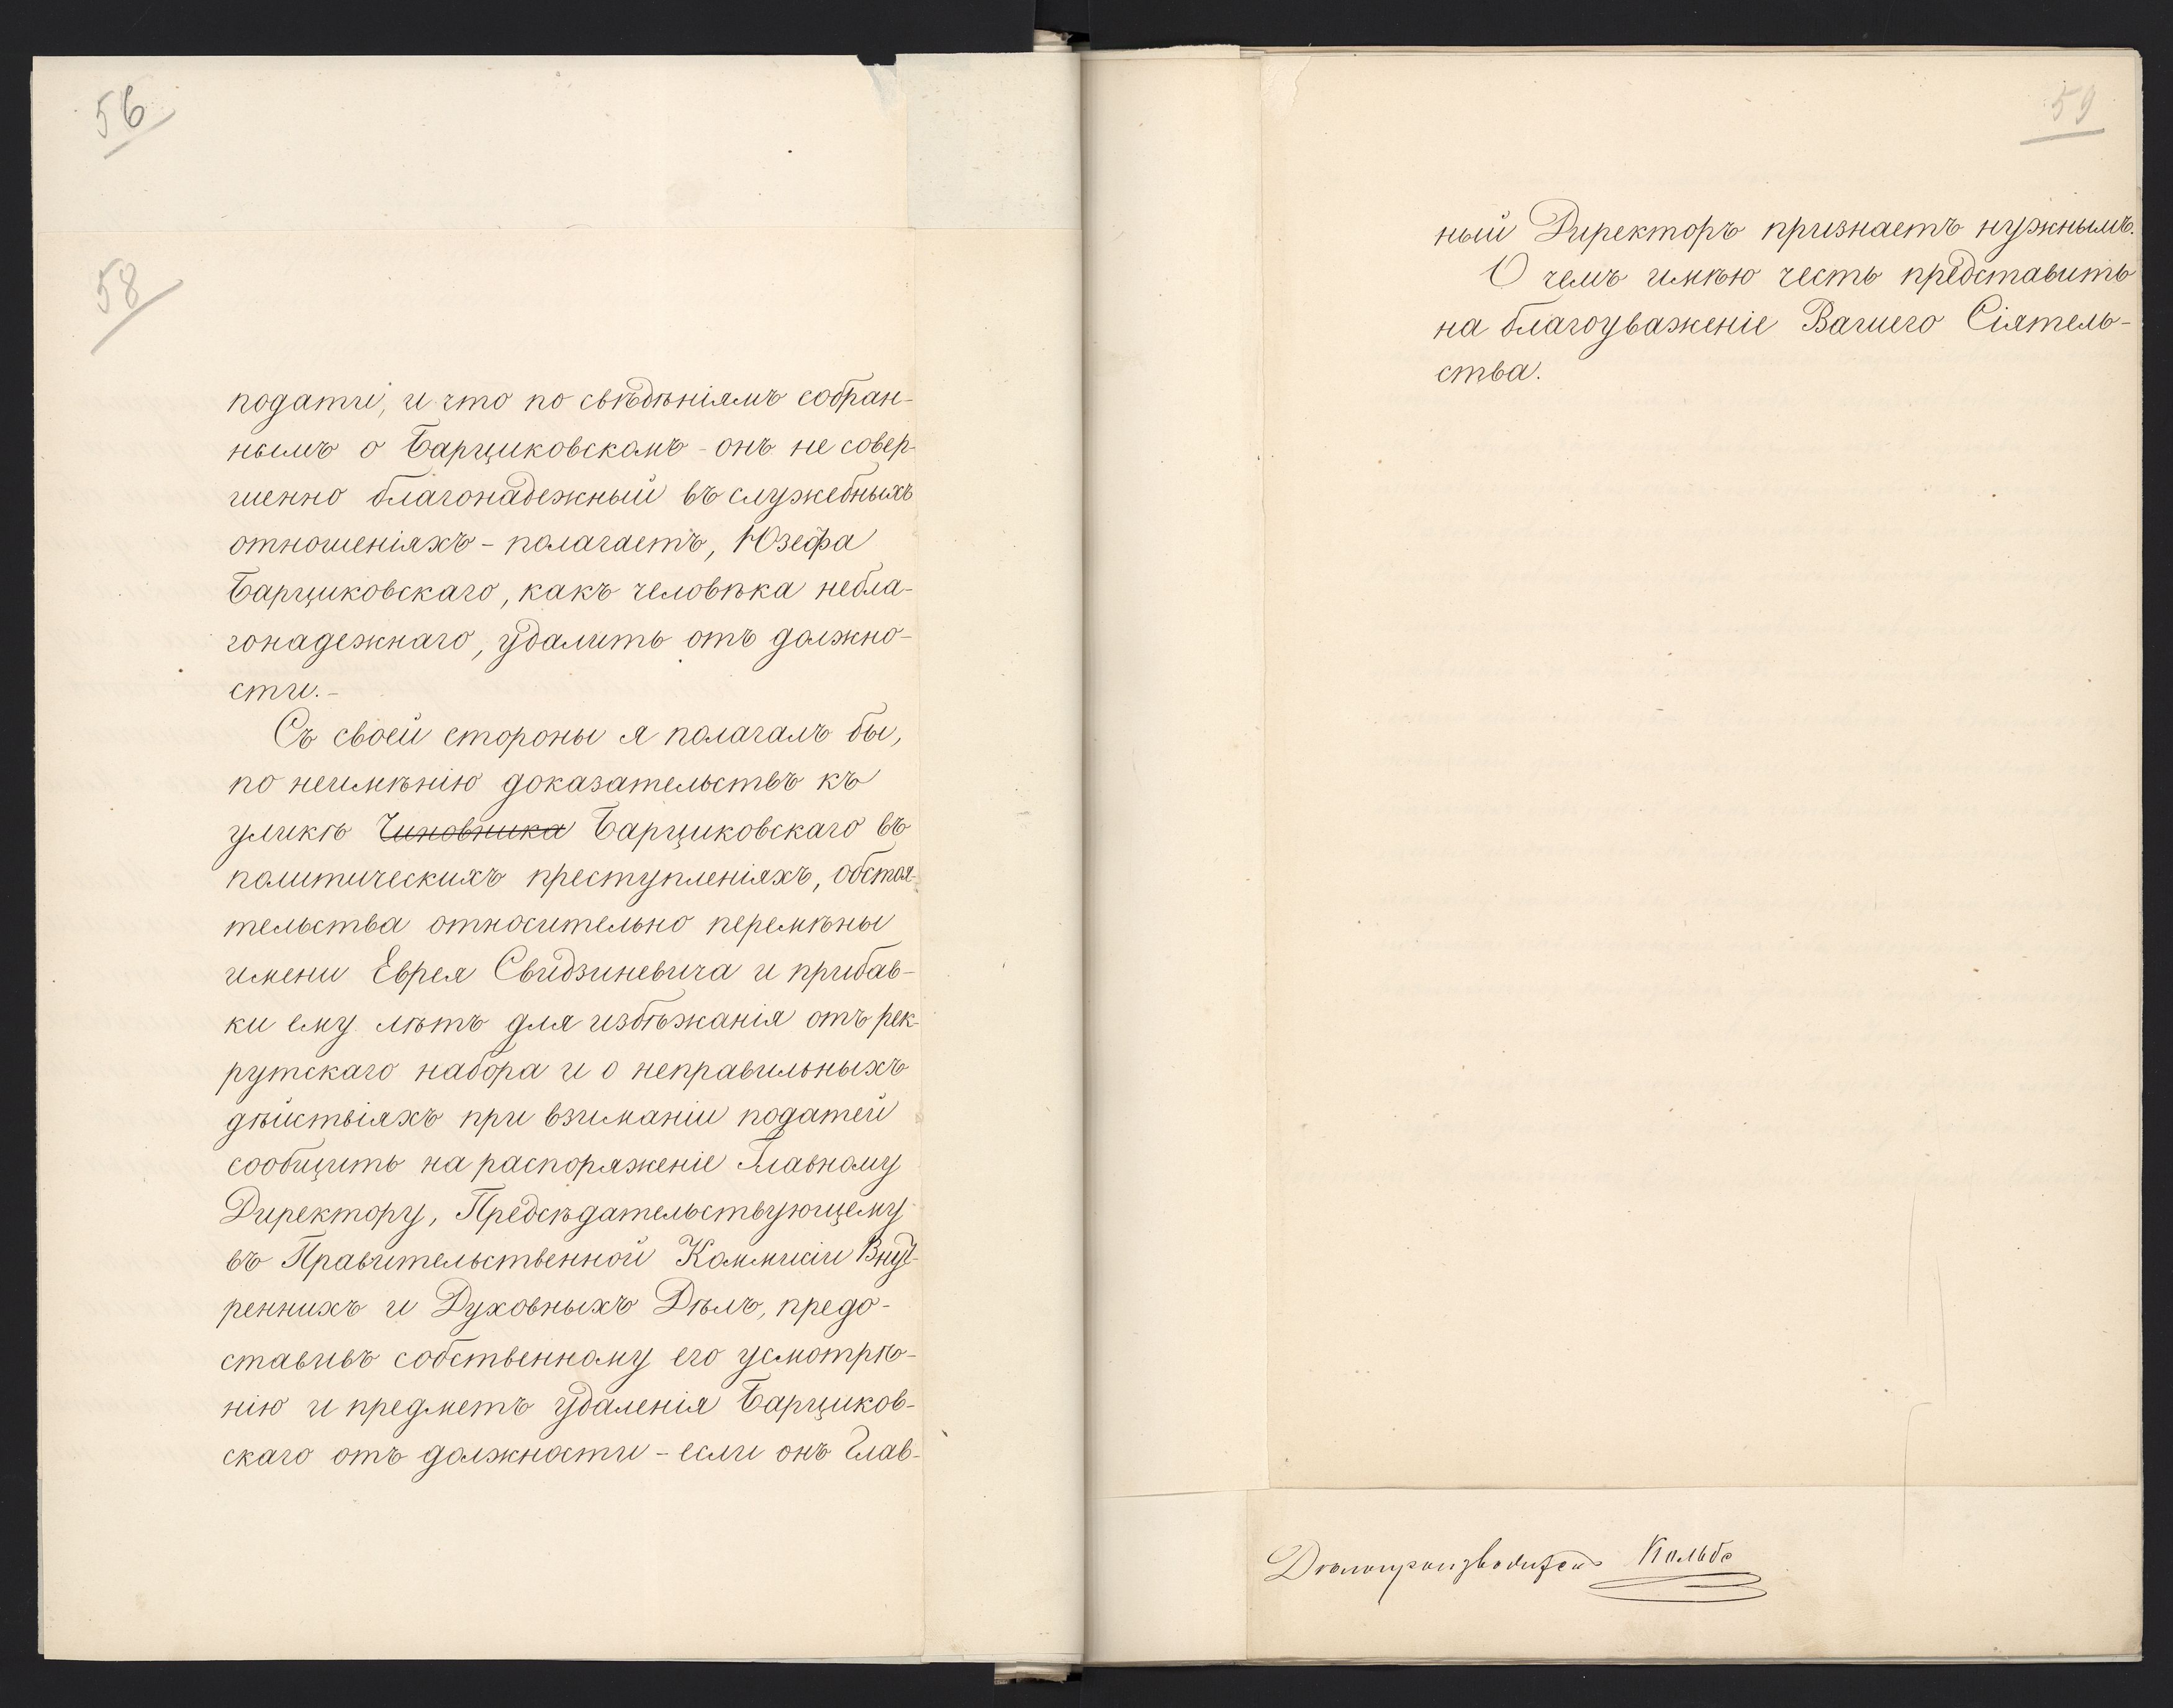 56
58
подати, и что по свѣдѣніямъ собран-
нымъ о Барщиковскомъ - онъ не совер-
шенно благонадежный въ служебныхъ
отношеніяхъ - полагаетъ, Юзефа
Барщиковскаго, какъ человѣка небла-
гонадежнаго, удалить отъ должно-
сти.-
Съ своей стороны я полагалъ бы,
по неимѣнію доказательствъ къ
уликѣ Чиновника Барщиковскаго въ
политическихъ преступленіяхъ, обстоя-
тельства относительно перемѣны
имени Еврея Свидзиневича и прибав-
ки ему лѣтъ для избѣжанія отъ рек-
рутскаго набора и о неправильныхъ
дѣйствіяхъ при взиманіи податей
сообщить на распоряженіе Главному
Директору, Предсѣдательствующему
въ Правительственной Коммисіи Внут-
реннихъ и Духовныхъ Дѣлъ, предо-
ставивъ собственному его усмотрѣ-
нію и предметъ удаленія Барщиков-
скаго отъ должности - если онъ Глав-
59
ный Директоръ признаетъ нужнымъ.
О чемъ имѣю честь представить
на благоуваженіе Вашего Сіятель-
ства.
Дѣлопроизводитель Кольбе